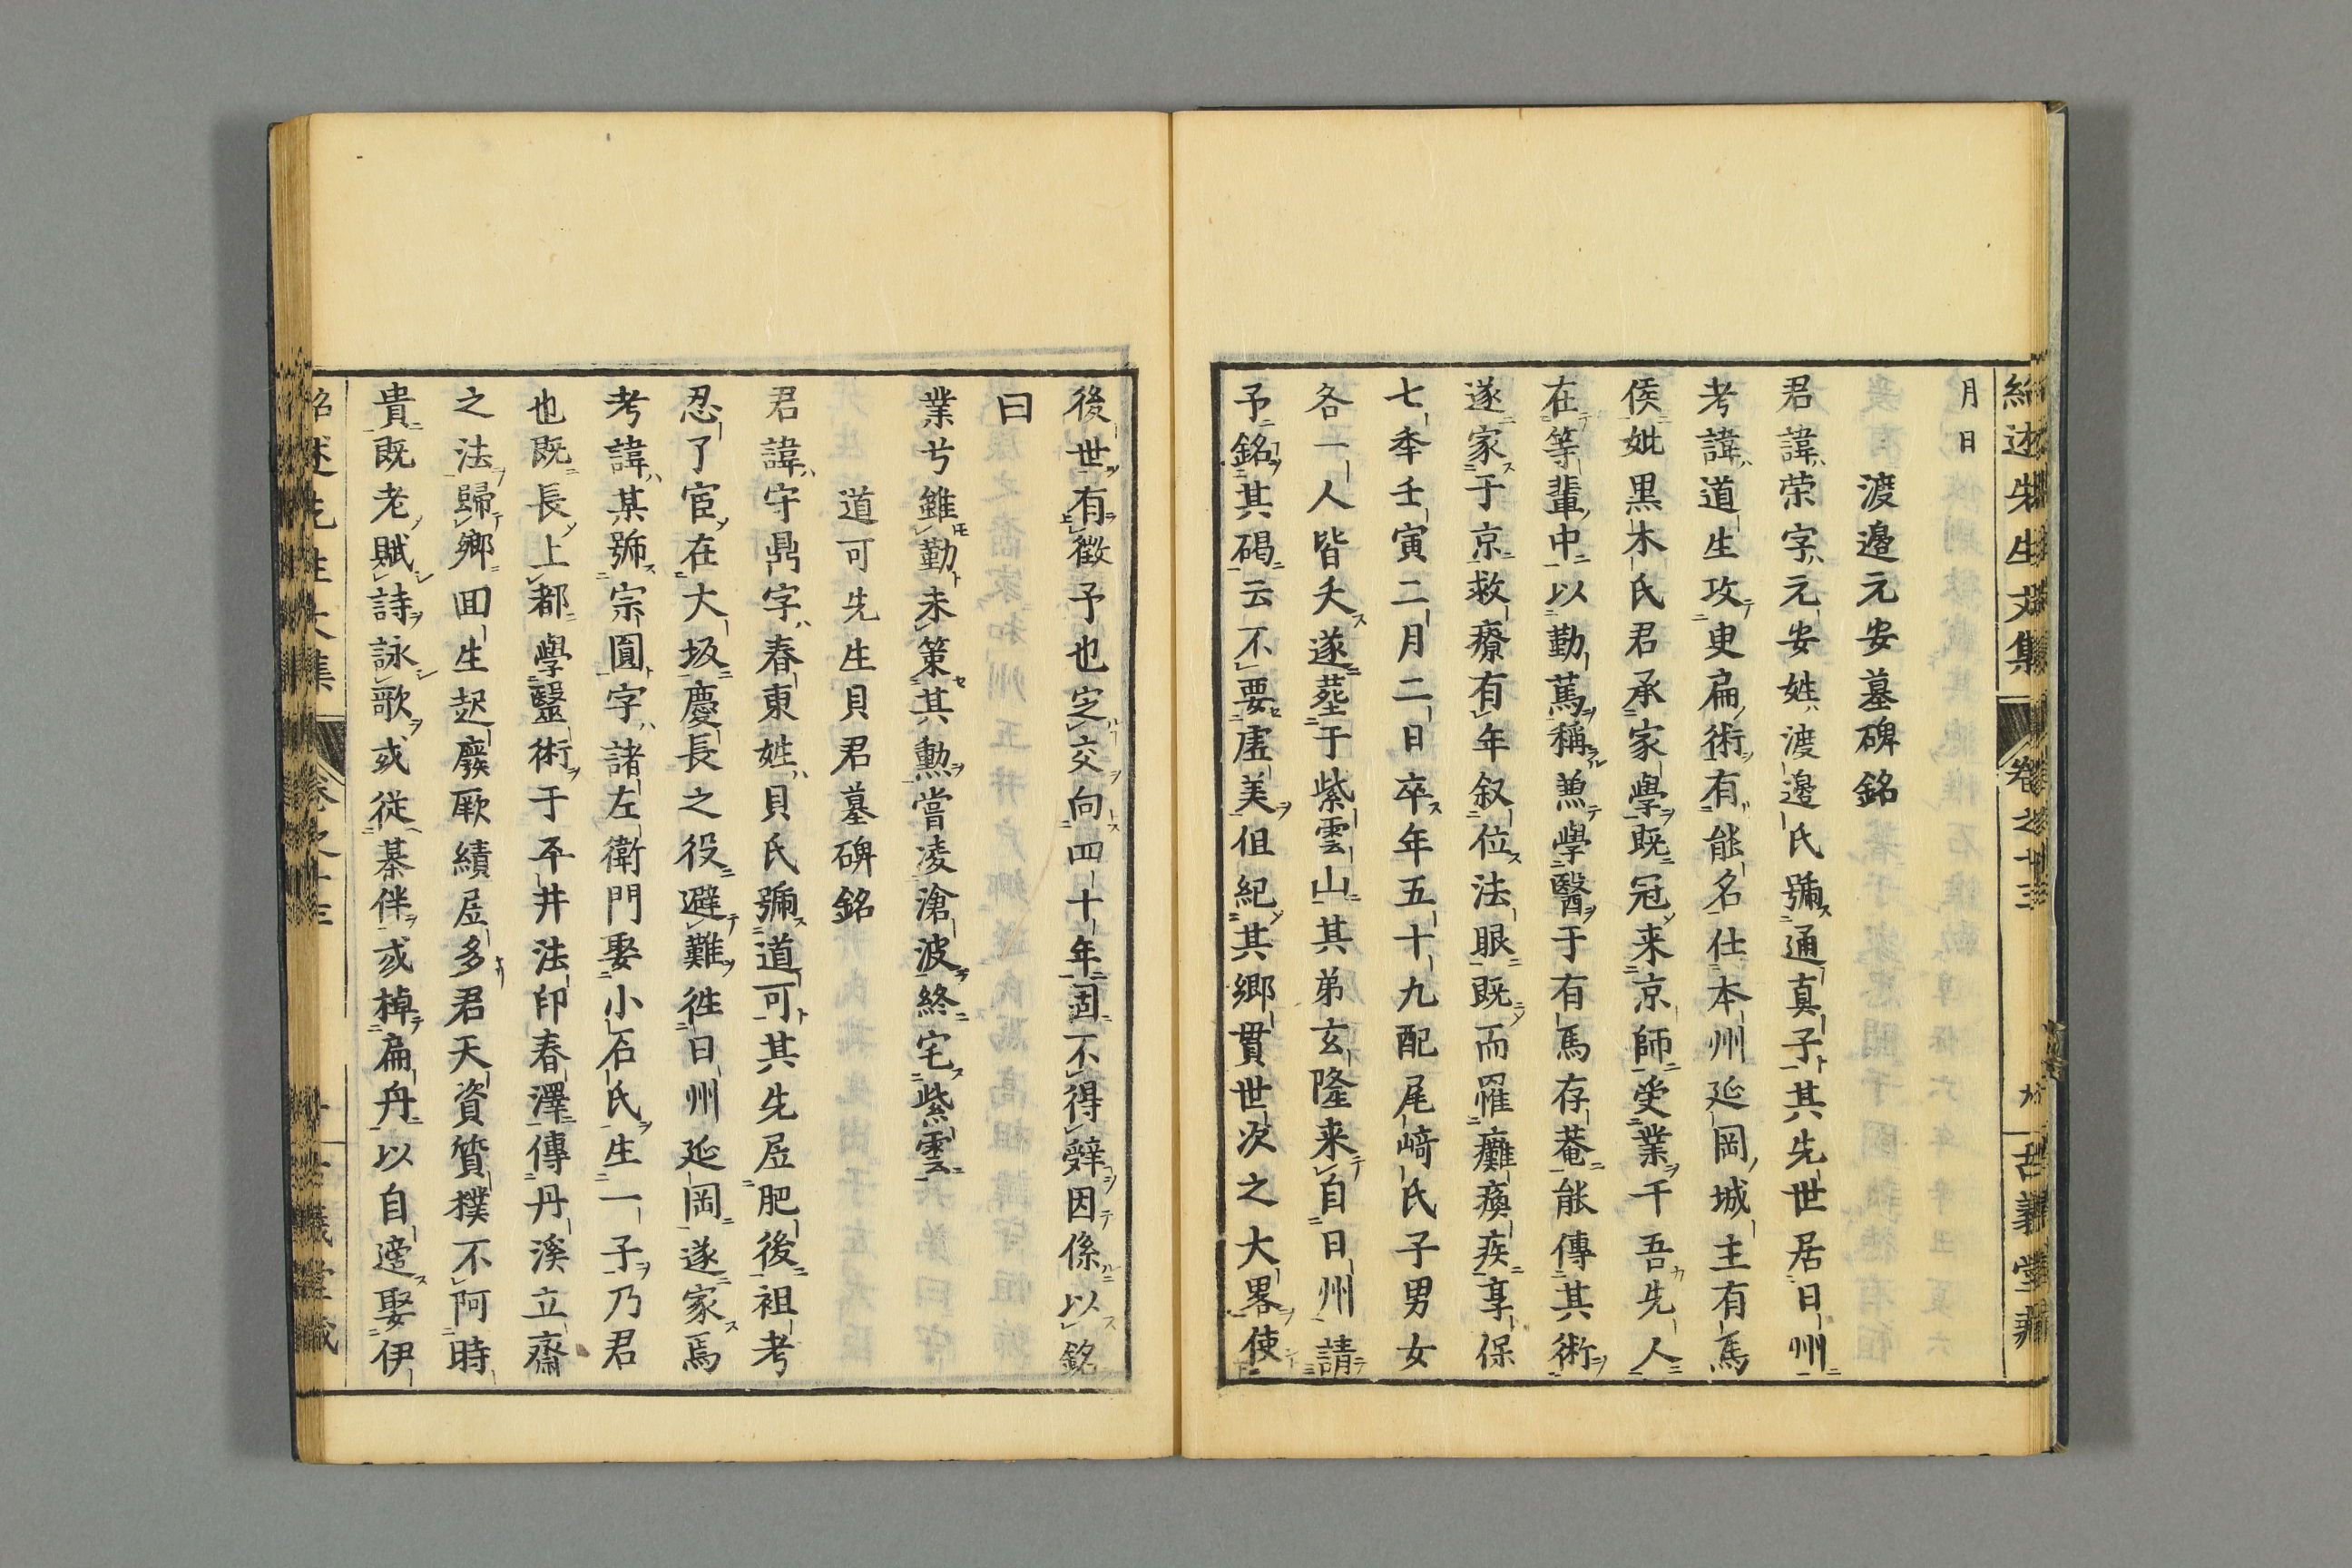 紹述先生文集
卷之十三
古義堂藏
月日
渡邉元安墓碑銘
君諱荣字元安姓渡邉氏號通真子其先世居日州
考諱道生攻吏扁術有能名仕本州延岡城主有馬
侯妣黒木氏君承家學既冠来京師受業于吾先人
在等輩中以勤篤稱兼學醫于有馬存菴能傳其術
遂家于京救療有年叙位法眼既而罹癱瘓疾享保
七年壬寅二月二日卒年五十九配尾﨑氏子男女
各一人皆夭遂塟于紫雲山其弟玄隆来自日州請
予銘其碣云不要虚美但紀其郷貫世次之大畧使
後世有徵予也㝎交向四十年固不得辤因係以銘
曰
業兮雖勤未策其勲嘗凌滄波終宅紫雲
道可先生貝君墓碑銘
君諱守鼎字春東姓貝氏號道可其先居肥後祖考
忍了宦在大坂慶長之役避難徃日州延岡遂家焉
考諱某號宗圓字諸左衛門娶小石氏生一子乃君
也既長上都學毉術于平井法印春澤傳丹溪立齋
之法歸郷回生起廢厥績居多君天資質樸不阿時
貴既老賦詩詠歌或従棊伴或棹扁舟以自遣娶伊